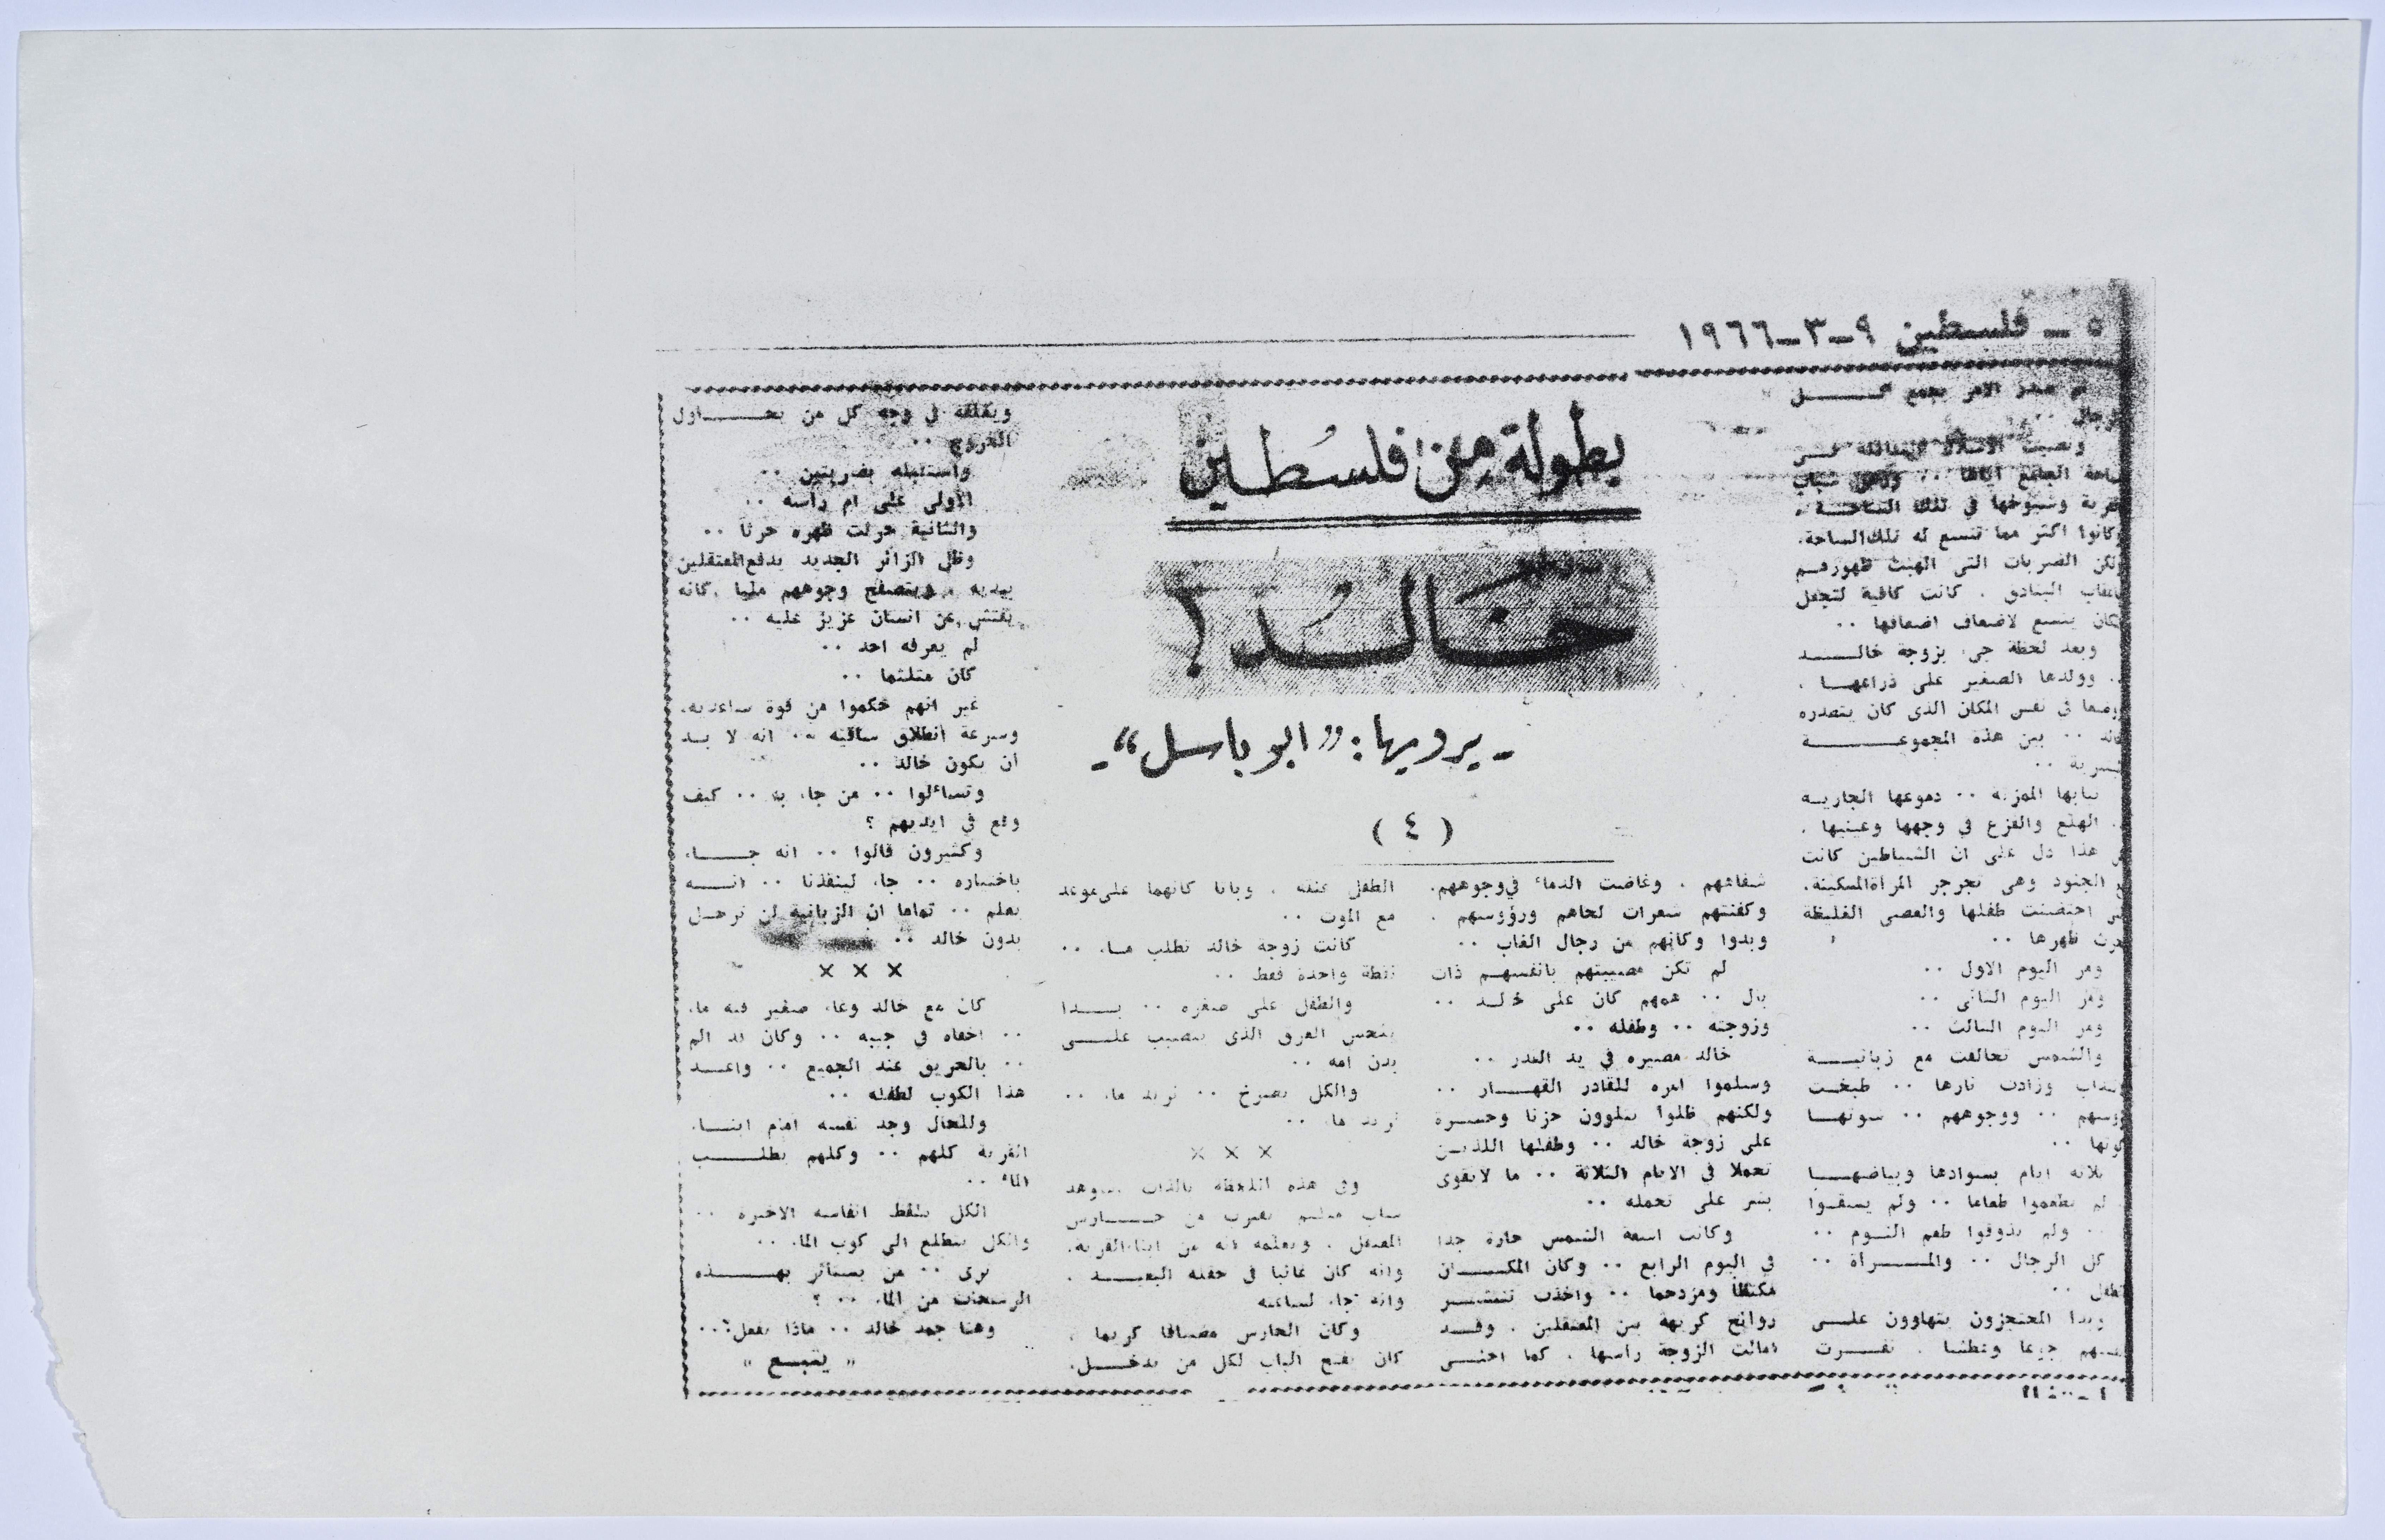 ٥ ــ فلسطين ٩ــ٣ــ١٩٦٦
بطولة من فلسطين
خالد !
ـ يرويها : " ابو باسل " ـ
( ٤ )
صدر الامر بجمع كـــل
ونصبت الاسلاك
وشيوخها في تلك الساحـــة .
وكانوا اكثر مما تتسع له تلك الساحة .
ولكن الضربات التي الهبت ظهورهـم
البنادق . كانت كافية لتجعل
يتسع لاضعاف اضعافها ..
وبعد لحظة جيء بزوجة خالـــد
.. وولدها الصغير على ذراعهــا .
في نفس المكان الذى كان يتصدره
.. بين هذه المجموعـــــة
..
ثيابها الممزقة .. دموعها الجاريــة
.. الهلع والفزع في وجهها وعينيها .
هذا دل على ان الشياطين كانت
الجنود وهي تجرجر المرأة المسكينة .
احتضنت طفلها والعصى الغليظة
ظهرها ..
ومر اليوم الاول ..
ومر اليوم الثاني ..
ومر اليوم الثالث ..
والشمس تحالفت مع زبانيـــة
وزادت نارها .. طبخـت
.. ووجوههم .. شوتهــا
..
ثلاثة ايام بسوادها وبياضهـــا
لم يطعموا طعاما .. ولم يسقــوا
.. ولم يذوقوا طعم النــوم ..
كل الرجال .. والمـــرأة ..
..
وبدا المحتجزون يتهاوون علـــى
جوعا وعطشا .
شفاههم . وغاضت الدماء في وجوههم .
وكفنتهم شعرات لحاهم ورؤوسهم .
وبدوا وكانهم من رجال الغاب ..
لم تكن مصيبتهم بانفسهــم ذات
بال .. همهم كان على خالــد ..
وزوجته .. وطفله ..
خالد مصيره في يد القدر ..
وسلموا امره للقادر القهــار ..
ولكنهم ظلوا يتلوون حزنا وحســرة
على زوجة خالد .. وطفلها اللذيـن
تحملا في الايام الثلاثة .. ما لا يقوى
بشر على تحمله ..
وكانت اشعة الشمس حارة جدا
في اليوم الرابع .. وكان المكـــان
مكتظا ومزدحما .. واخذت تنتشــر
روائح كريهة بين المعتقلين . وقــد
امالت الزوجة راسها . كما احنــى
الطفل عنقه . وباتا كانهما على موعد
مع الموت ..
كانت زوجة خالد تطلب مــاء ..
نقطة واحدة فقط ..
والطفل على صغره .. بـــدا
يلحس العرق الذى يتصبب علـــى
بدن امه ..
والكل يصرخ .. نريد ماء ..
نريد ماء ..
× × ×
وفي هذه اللحظة بالذات شوهد
شاب ملثم يقترب من حـــارس
المعتقل . ويعلمه انه من ابناء القرية .
وانه كان غائبا في حقله البعيــد .
وانه جاء لساعته
وكان الحارس مضيافا كريما .
كان يفتح الباب لكل من يدخـــل .
ويغلقه في وجه كل من يحـــاول
الخروج ..
واستقبله بضربتين ..
الاولى على ام رأسه ..
والثانية حرثت ظهره حرثا ..
وظل الزائر الجديد يدفع المعتقلين
بيديه . ويتصفح وجوههم مليا . كانه
يفتش عن انسان عزيز عليه ..
لم يعرفه احد ..
كان متلثما ..
غير انهم حكموا من قوة ساعديه .
وسرعة انطلاق ساقيه .. انه لا بــد
ان يكون خالد ..
وتساءلوا .. من جاء به .. كيف
وقع في ايديهم ؟
وكثيرون قالوا .. انه جـــاء
باختياره .. جاء لينقذنا .. انـــه
يعلم .. تماما ان الزبانية لن ترحــل
بدون خالد ..
× × ×
كان مع خالد وعاء صغير فيه ماء
.. اخفاه في جيبه .. وكان قد الم
.. بالحريق عند الجميع .. واعــد
هذا الكوب لطفله ..
وللحال وجد نفسه امام ابنــاء
القرية كلهم .. وكلهم يطلـــب
الماء ..
الكل يلتقط انفاسه الاخيرة ..
والكل يتطلع الى كوب الماء ..
ترى .. من يستأثر بهـــذه
الرشحات من الماء .. ؟
وهنا جمد خالد .. ماذا يفعل ؟..
« يتبـــع »